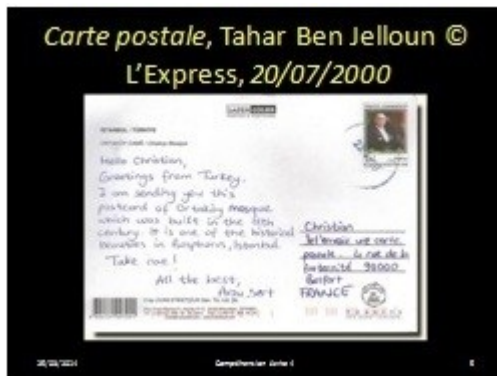 Carte postale, Tahar Ben Jelloun ©
L'Express, 20/07/2000
Hello Christian,
Greetings from Turkey.
I am sending you this
postcard of Ortaköy mosque
which was built in the
century. It is one of the historical
beauties in Bosphorus, Istanbul.
Take care!
All the best,
Christian
une carte
rue de la
fraternité 90000
Belfort
FRANCE